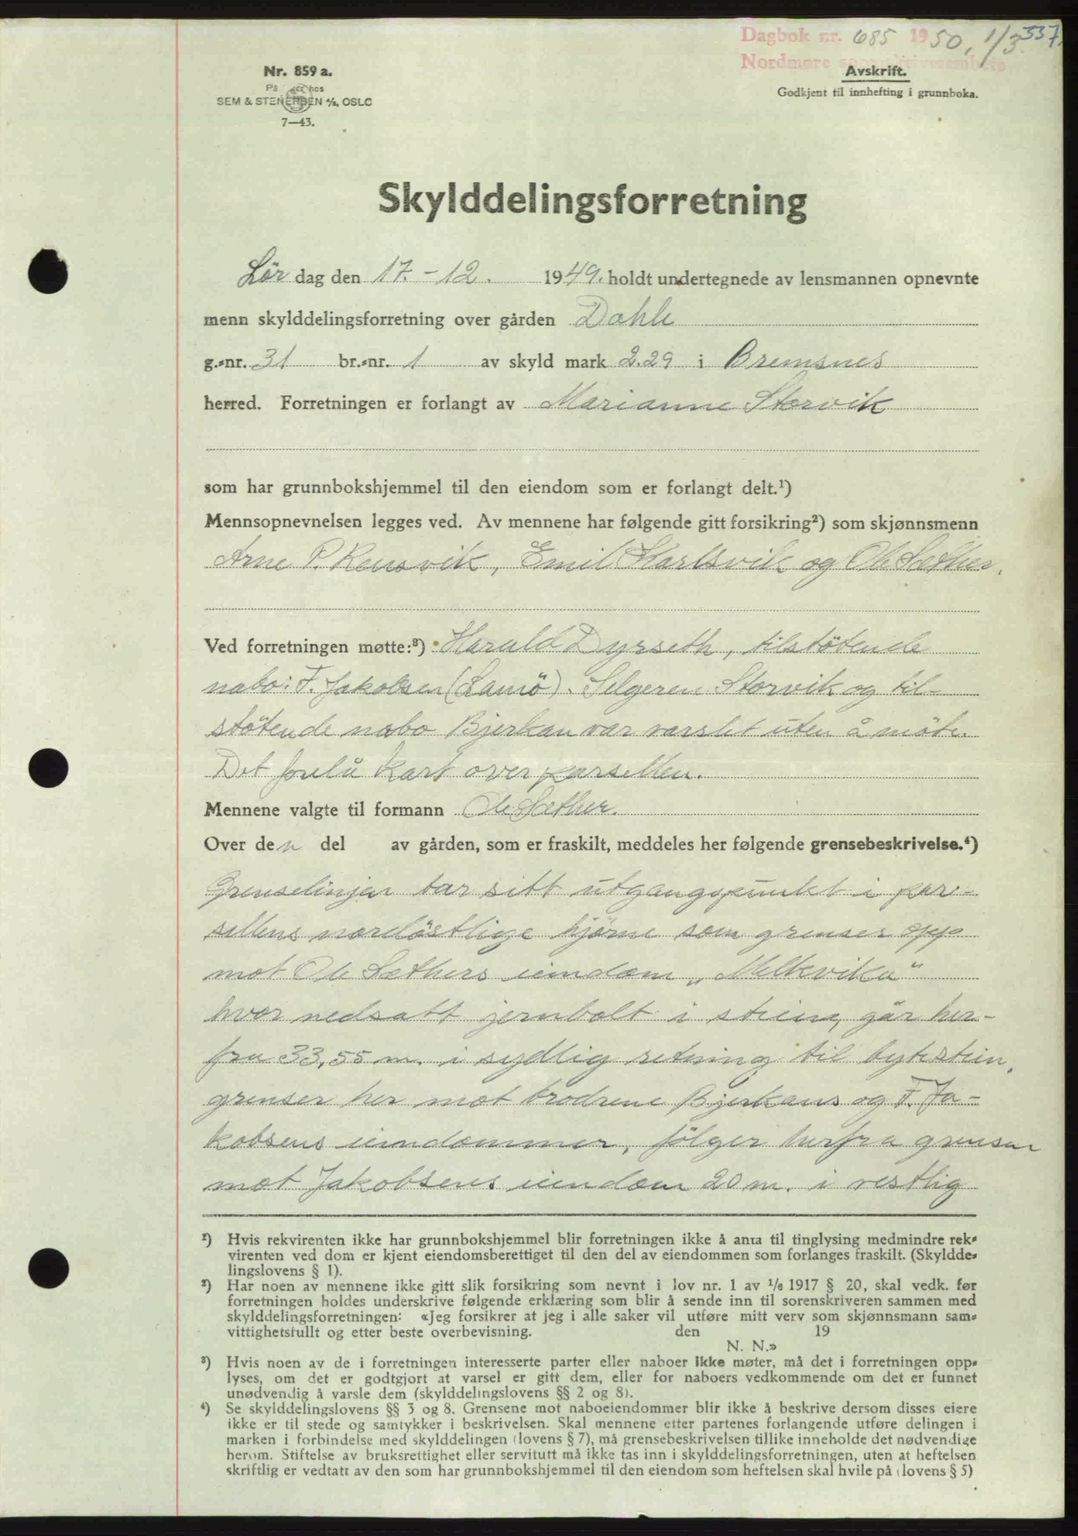 Dagbok nr. 685 1950, 1/3 337.
Nordmøre sorenskriverembete
Nr. 859 a.
På hos
SEM & STENERSEN A/S, OSLO
7—43.
Avskrift.
Godkjent til innhefting i grunnboka.
Skylddelingsforretning
Lör dag den 17.-12. 1949. holdt undertegnede av lensmannen opnevnte
menn skylddelingsforretning over gården Dahle
g.-nr. 31 br.-nr. 1 av skyld mark 2.29 i Bremsnes
herred. Forretningen er forlangt av Marianne Storvik
som har grunnbokshjemmel til den eiendom som er forlangt delt.¹)
Mennsopnevnelsen legges ved. Av mennene har følgende gitt forsikring²) som skjønnsmenn
Arne P. Rensvik, Emil Karlsvik og Ole Sæther.
Ved forretningen møtte:³) Harald Dyrseth, tilstötende
nabo: F. Jakobsen (Lamö). Selgeren Storvik og til-
stötende nabo Bjerkan var varslet uten å möte.
Det forelå kart over parsellen.
Mennene valgte til formann Ole Sæther.
Over den del av gården, som er fraskilt, meddeles her følgende grensebeskrivelse.⁴)
Grenselinjen tar sitt utgangspunkt i par-
sellens nordöstlige hjörne som grenser opp
mot Ole Sæthers eiendom „Melkvika"
hvor nedsatt jernbolt i steien, går her-
fra 33,55 m. i sydlig retning til bytestein,
grenser her mot brödrene Bjerkans og F. Ja-
kobsens eiendommer, fölger herfra grensen
mot Jakobsens eiendom 20 m. i vestlig
¹) Hvis rekvirenten ikke har grunnbokshjemmel blir forretningen ikke å anta til tinglysing medmindre rek-
virenten ved dom er kjent eiendomsberettiget til den del av eiendommen som forlanges fraskilt. (Skyldde-
lingslovens § 1).
²) Har noen av mennene ikke gitt slik forsikring som nevnt i lov nr. 1 av 1/6 1917 § 20, skal vedk. før
forretningen holdes underskrive følgende erklæring som blir å sende inn til sorenskriveren sammen med
skylddelingsforretningen: «Jeg forsikrer at jeg i alle saker vil utføre mitt verv som skjønnsmann sam-
vittighetsfullt og etter beste overbevisning. den 19
N. N.»
³) Hvis noen av de i forretningen interesserte parter eller naboer ikke møter, må det i forretningen opp-
lyses, om det er godtgjort at varsel er gitt dem, eller for naboers vedkommende om det er funnet
unødvendig å varsle dem (skylddelingslovens §§ 2 og 8).
⁴) Se skylddelingslovens §§ 3 og 8. Grensene mot naboeiendommer blir ikke å beskrive dersom disses eiere
ikke er til stede og samtykker i beskrivelsen. Skal mennene etter partenes forlangende utføre delingen i
marken i forbindelse med skylddelingen (lovens § 7), må grensebeskrivelsen tillike inneholde det nødvendige
herom. Stiftelse av bruksrettighet eller servitutt må ikke tas inn i skylddelingsforretningen, uten at heftelsen
skriftlig er vedtatt av den som har grunnbokshjemmel til den eiendom som heftelsen skal hvile på (lovens § 5)